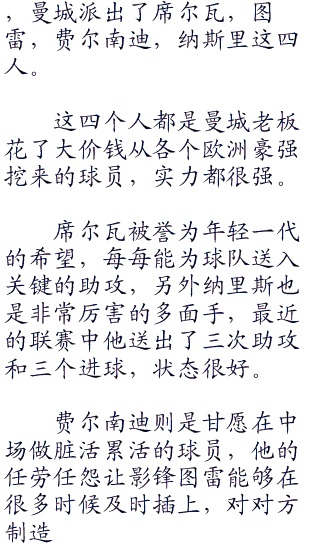 ，曼城派出了席尔瓦，图
雷，费尔南迪，纳斯里这四
人。
这四个人都是曼城老板
花了大价钱从各个欧洲豪强
挖来的球员，实力都很强。
席尔瓦被誉为年轻一代
的希望，每每能为球队送入
关键的助攻，另外纳里斯也
是非常厉害的多面手，最近
的联赛中他送出了三次助攻
和三个进球，状态很好。
费尔南迪则是甘愿在中
场做脏活累活的球员，他的
任劳任怨让影锋图雷能够在
很多时候及时插上，对对方
制造